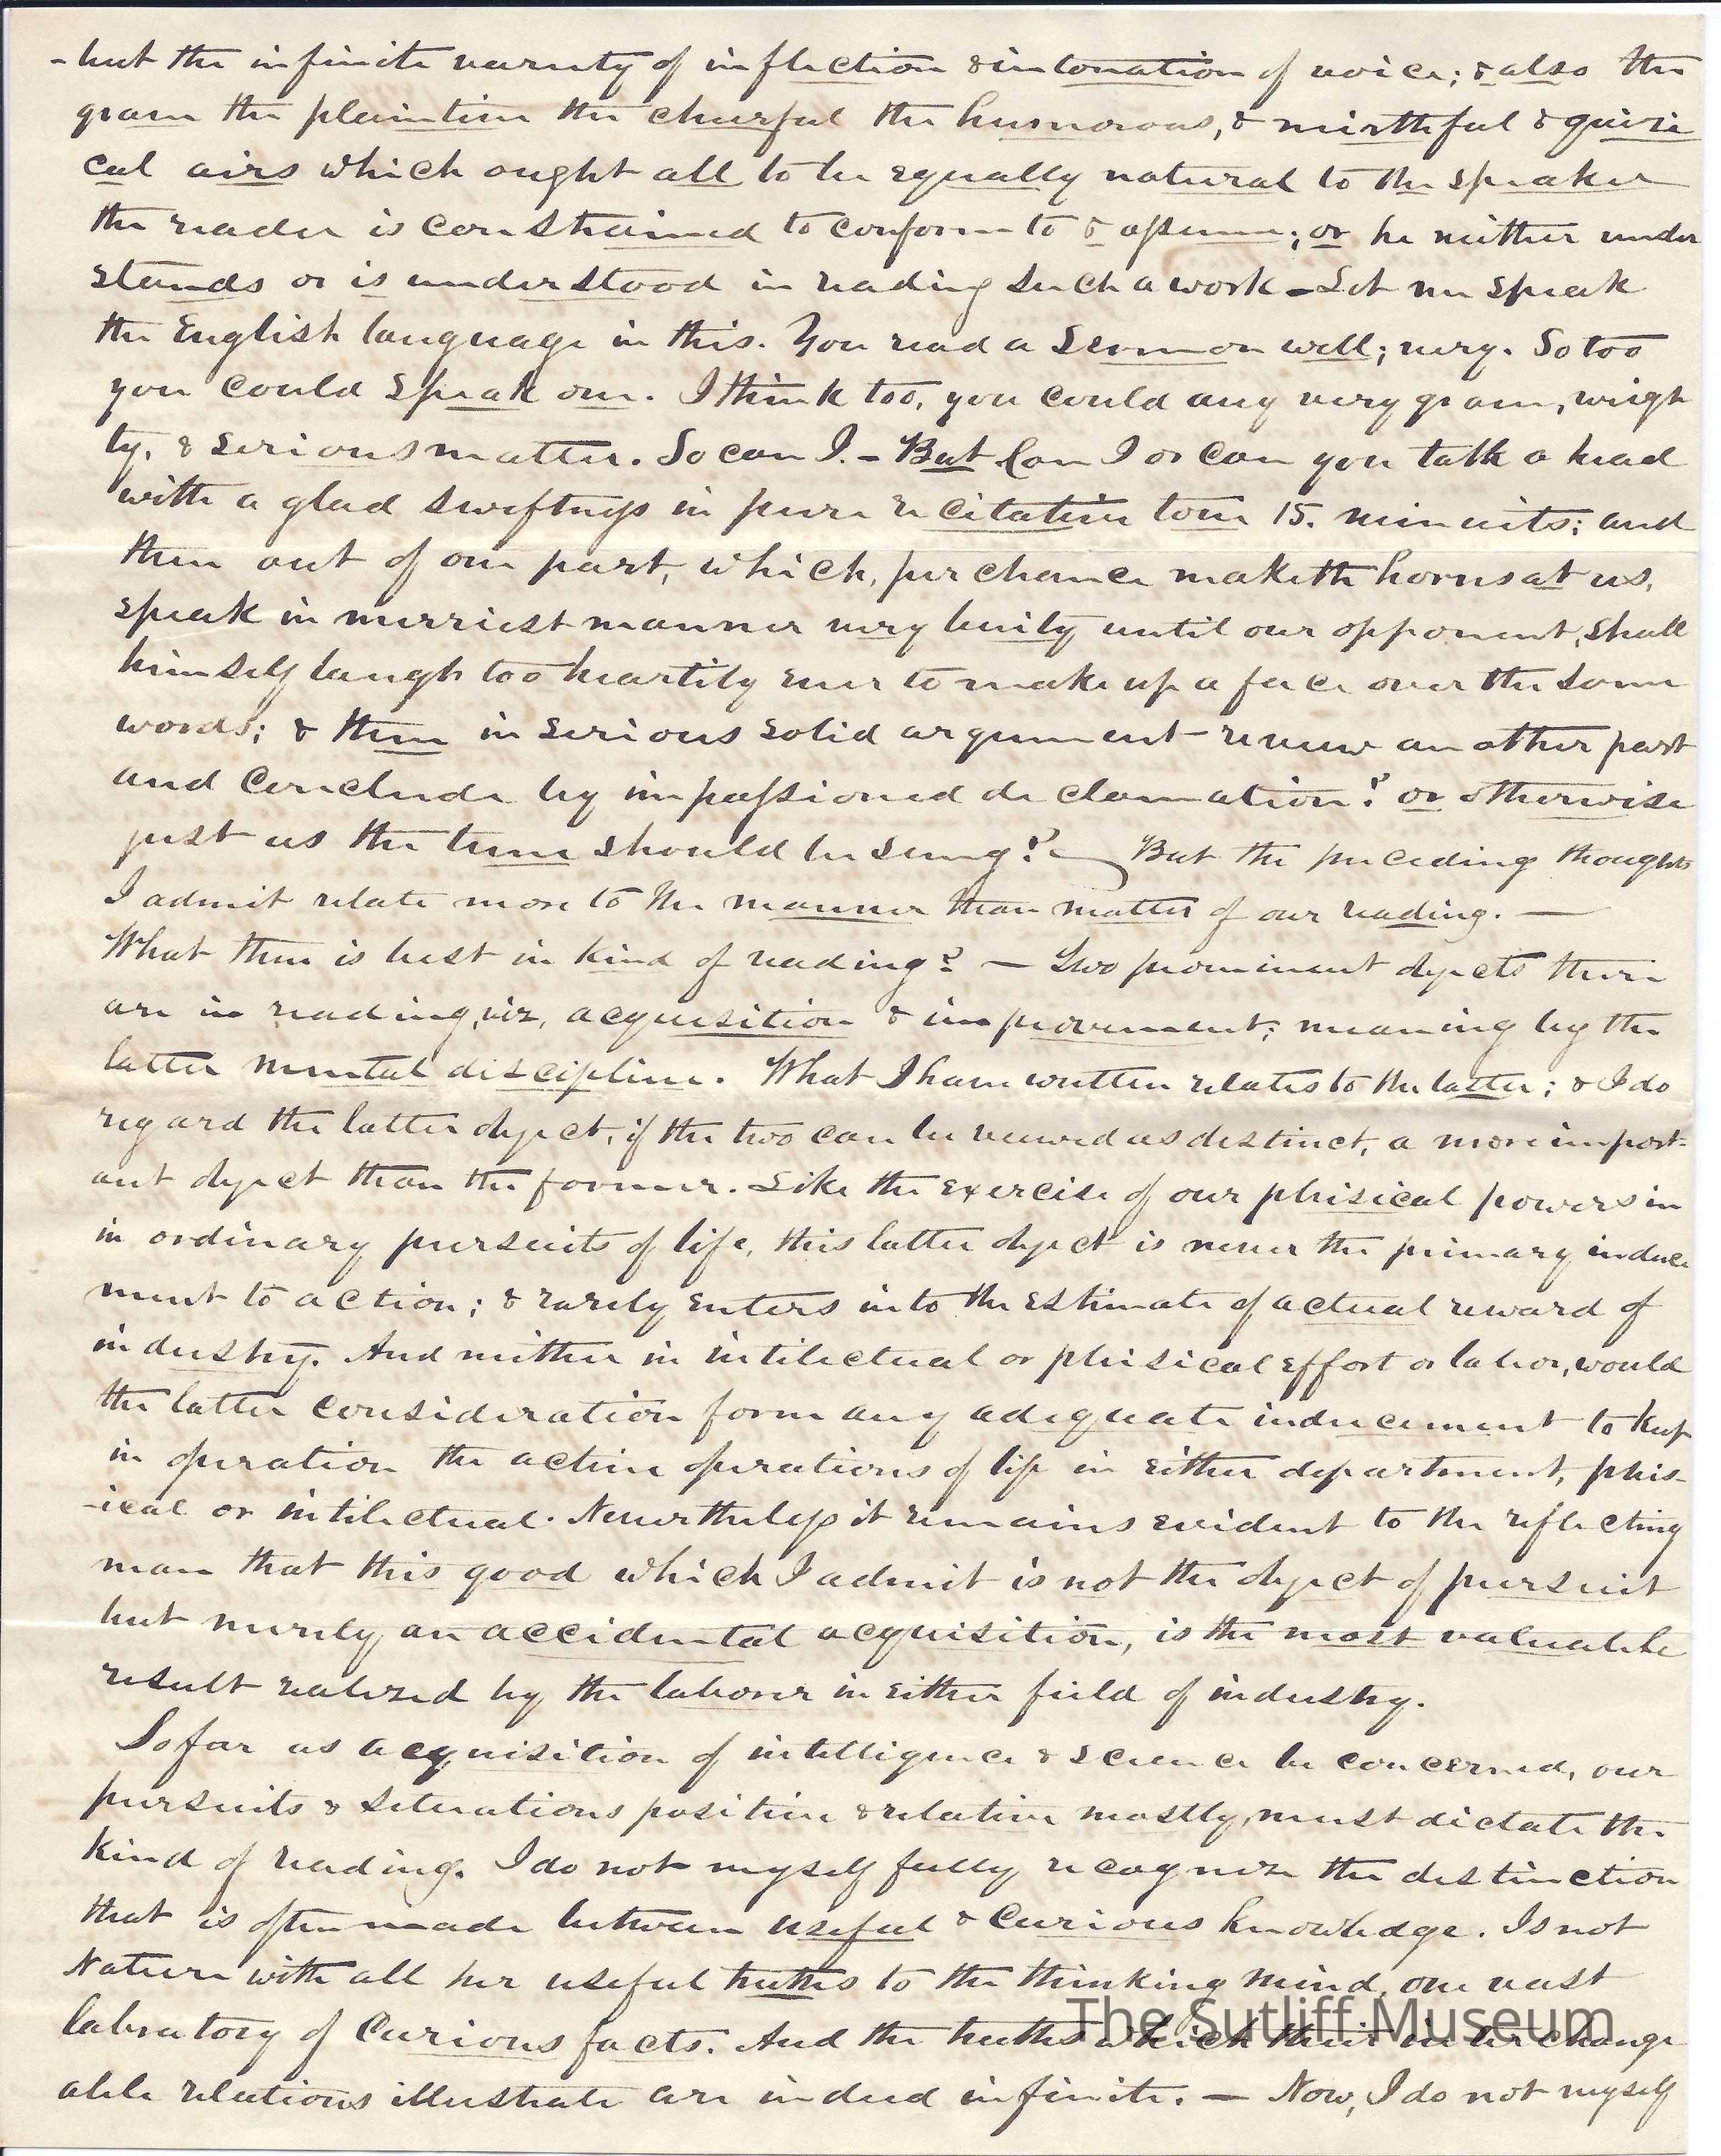 - but the infinite variety of inflection & intonation of voice; & also the
grave the plaintive the cheerful the humorous, & mirthful & quizi
cal airs which ought all to be equally natural to the speaker
the reader is constrained to conform to & assume; or he neither under
stands or is understood in reading such a work - Let me speak
the English language in this. You read a sermon well; very. So too
you could speak one. I think too, you could any very grave, weigh
ty, & serious matter. So can I. - But Can I or can you talk a head
with a glad swiftness in pure recitative tone 15. minuits; and
then out of one part, which, perchance maketh horns at us,
speak in merriest manner very busily until our opponent, shall
himself laugh too heartily ever to make up a face over the same
words; & then in serious solid argument review an other part
and conclude by impassioned declamation? or otherwise
just as the tune should be sung? But the preceding thoughts
I admit relate more to the manner than matter of our reading. —
What then is best in kind of reading? — Two prominent objects there
are in reading, viz, acquisition & improvement; meaning by the
latter mental discipline. What I have written relates to the latter; & I do
regard the latter object, if the two can be viewed as distinct, a more import-
ant object than the former. Like the exercise of our phisical powers in
in ordinary pursuits of life, this latter object is never the primary induce
ment to action; & rarely enters into the estimate of actual reward of
industry. And neither in intilectual or phisical effort or labor, would
the latter consideration form any adequate inducement to keep
in operation the active operations of life in either department, phis-
-ical or intilectual. Nevertheless it remains evident to the reflecting
man that this good which I admit is not the object of pursuit
but merely an accidental acquisition, is the most valuable
result realized by the laborer in either field of industry.
So far as acquisition of intelligence & science be concerned, our
pursuits & situations positive & relative mostly, must dictate the
kind of reading. I do not myself fully recognize the distinction
that is often made between useful & curious knowledge. Is not
Nature with all her useful truths to the thinking mind, one vast
labratory of Curious facts. And the truths which their interchange
able relations illustrate are indeed infinite. — Now, I do not myself
The Sutliff Museum